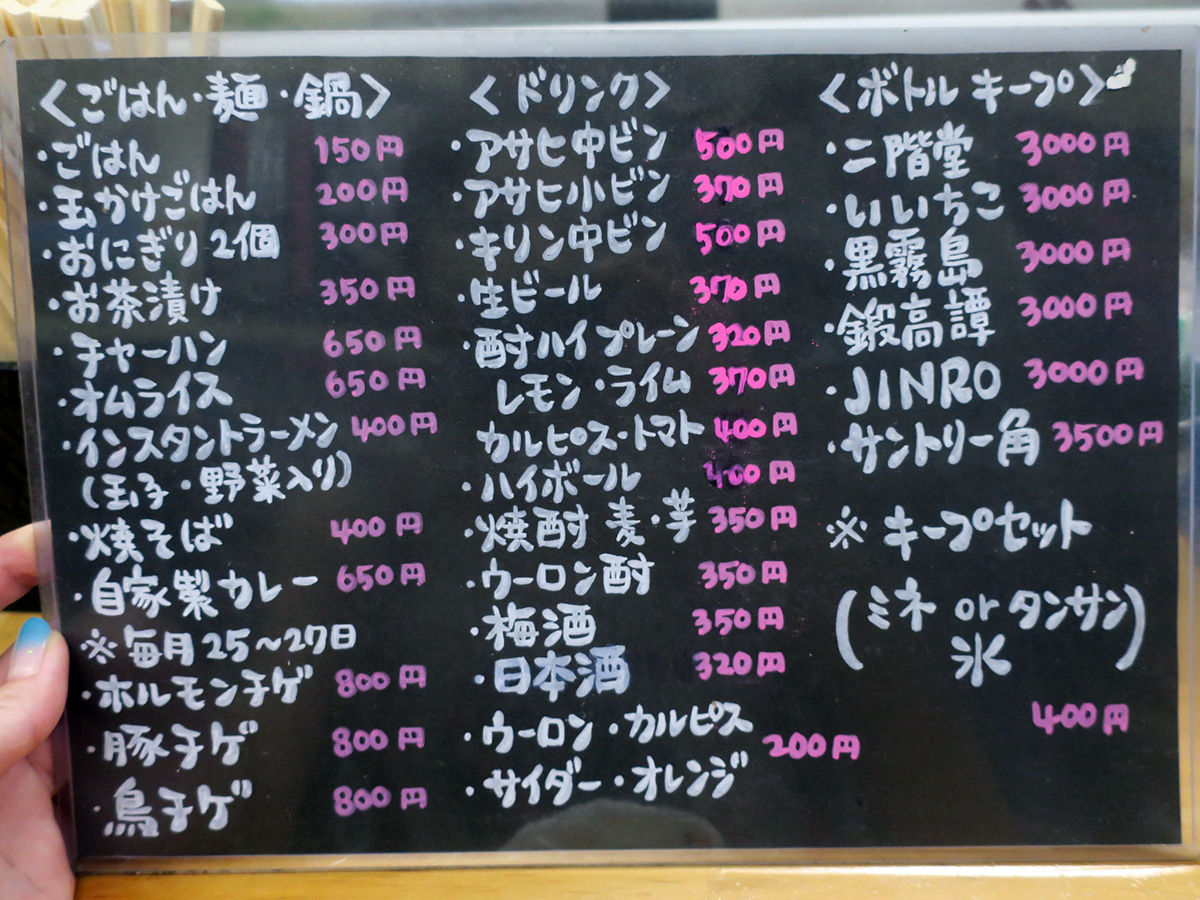 <ごはん・麺・鍋>
・ごはん 150円
・玉かけごはん 200円
・おにぎり2個 300円
・お茶漬け 350円
・チャーハン 650円
・オムライス 650円
・インスタントラーメン 400円
(玉子・野菜入り)
・焼そば 400円
・自家製カレー 650円
※毎月25~27日
・ホルモンチゲ 800円
・豚チゲ 800円
・鳥チゲ 800円
<ドリンク>
・アサヒ中ビン 500円
・アサヒ小ビン 370円
・キリン中ビン 500円
・生ビール 370円
・酎ハイプレーン 320円
レモン・ライム 370円
カルピス・トマト 400円
・ハイボール 400円
・焼酎 麦・芋 350円
・ウーロン酎 350円
・梅酒 350円
・日本酒 320円
・ウーロン・カルピス
・サイダー・オレンジ 200円
<ボトルキープ>
・二階堂 3000円
・いいちこ 3000円
・黒霧島 3000円
・鍛高譚 3000円
・JINRO 3000円
・サントリー角 3500円
※キープセット
(ミネ or タンサン)
氷
400円